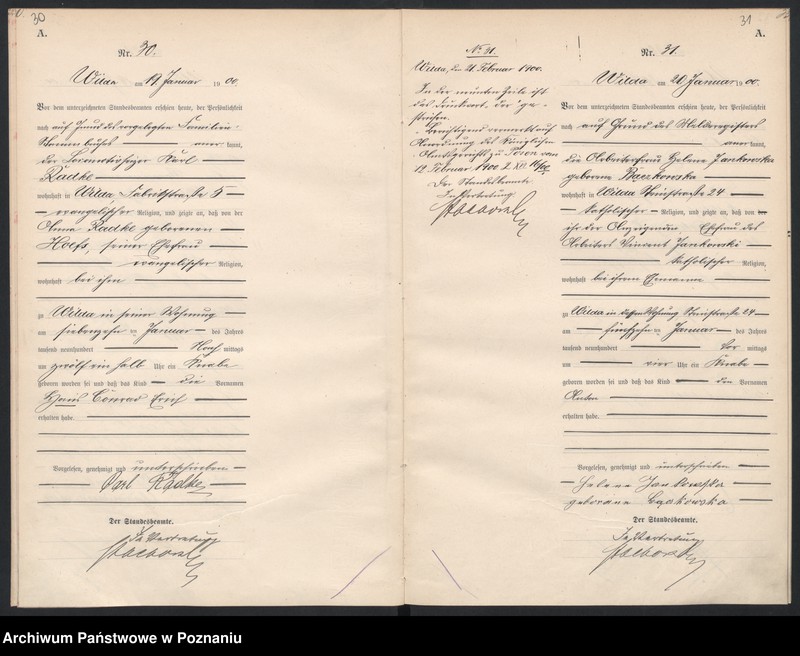 30
A.
Nr. 30.
Wilda am 19 Januar 1900.
Vor dem unterzeichneten Standesbeamten erschien heute, der Persönlichkeit
nach auf Grund des vorgelegten Familien-
Stammbuches anerkannt,
der Karl
Radtke
wohnhaft in Wilda Fabrikstraße 5
evangelischer Religion, und zeigte an, daß von der
Anna Radtke geborenen
seiner Ehefrau
evangelischer Religion,
wohnhaft bei ihm
zu Wilda in seiner Wohnung
am siebenzehn ten Januar des Jahres
tausend neunhundert Nach mittags
um zwölf ein halb Uhr ein Knabe
geboren worden sei und daß das Kind die Vornamen
Hans Conrad
erhalten habe.
Vorgelesen, genehmigt und unterschrieben
Carl Radtke
Der Standesbeamte.
In Vertretung
31
A.
No 31.
Wilda, den 21. Februar 1900.
In der neunten Zeile ist
das Druckwort "der" ge-
strichen.
Berichtigend vermerkt auf
Anordnung des Königlichen
Amtsgerichts zu Posen vom
12 Februar 1900
Der Standesbeamte
In Vertretung
Nr. 31.
Wilda am 20 Januar 1900.
Vor dem unterzeichneten Standesbeamten erschien heute, der Persönlichkeit
nach auf Grund des Melderegisters
anerkannt,
die Arbeiterfrau Helene Jankowska
geborene Baczkowska
wohnhaft in Wilda 24
katholischer Religion, und zeigte an, daß von der
ihr der Anzeigenden, Ehefrau des
Arbeiters Vincent Jankowski
katholischer Religion,
wohnhaft bei ihrem Ehemann
zu Wilda in dessen Wohnung 24
am fünfzehn ten Januar des Jahres
tausend neunhundert Vor mittags
um vier Uhr ein Knabe
geboren worden sei und daß das Kind den Vornamen
Anton
erhalten habe.
Vorgelesen, genehmigt und unterschrieben
Helene Jankowska
geborene Baczkowska
Der Standesbeamte.
In Vertretung
Archiwum Państwowe w Poznaniu